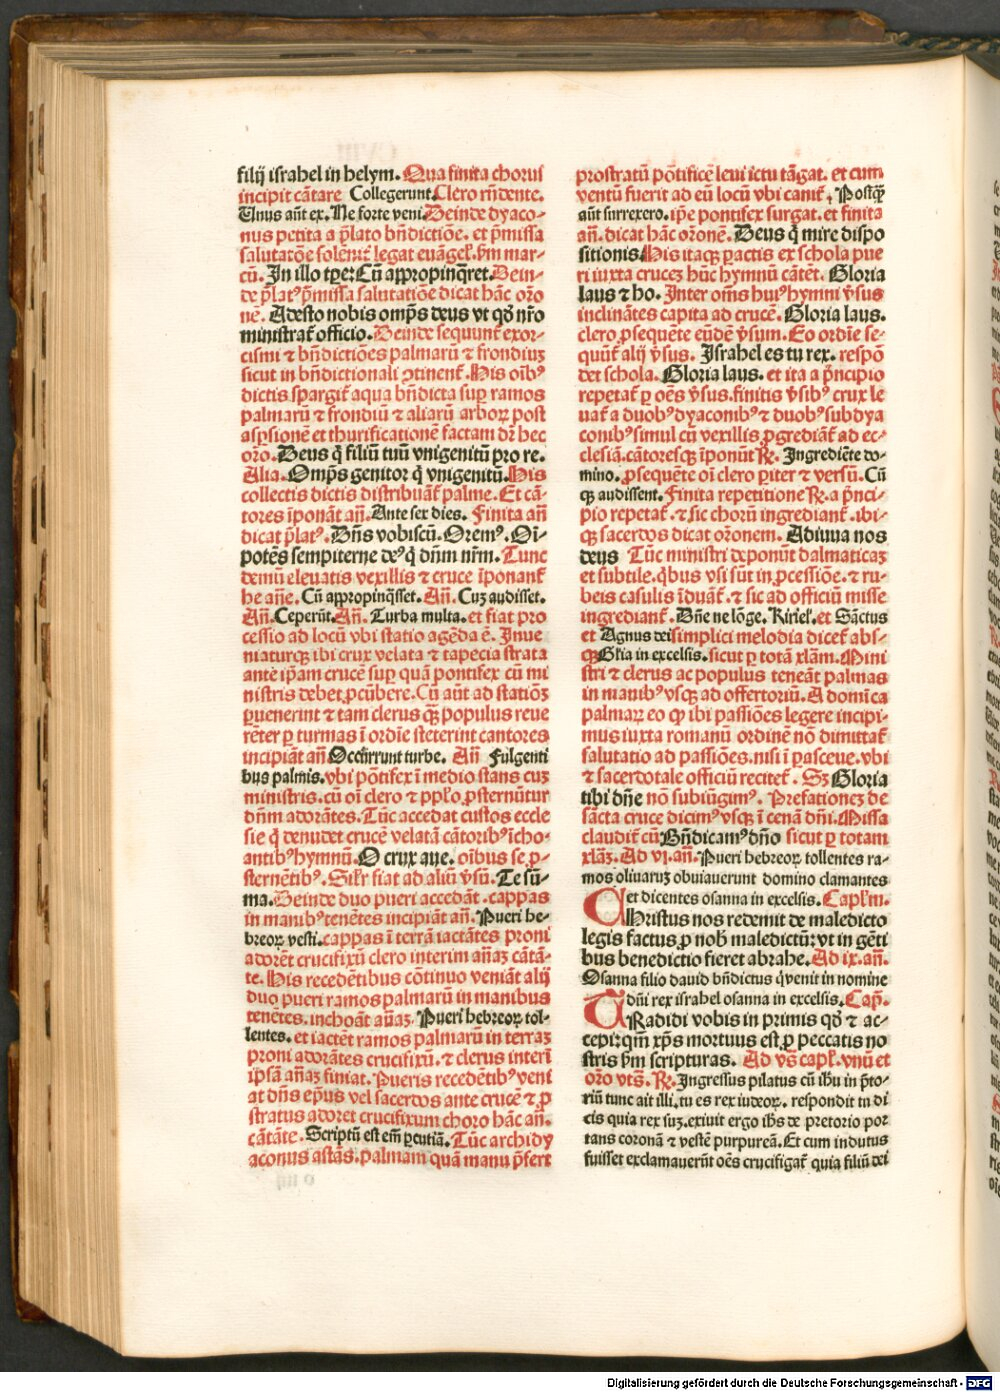 filij israhel in helym. Qua finita chorus
incipit cãtare Collegerunt. Clero rñdente.
Unus aũt ex. Ne forte veni. Deinde dyaco-
nus petita a p̃lato bñdictiõe. et p̃missa
salutatõe solenit̃ legat euãgeł. s̃m mar-
cũ. In illo tꝑe Cũ aꝓpropinq̃ret. Dein-
de p̃latꝰ p̃missa salutatiõe dicat hãc oro
nẽ. Adesto nobis omp̃s deus vt qđ nr̃o
ministrat̃ officio. Deinde sequunt̃ exor-
cismi ⁊ bñdictiões palmarũ ⁊ frondiuꝫ
sicut in bñdictionali ꝯtinent̃. His oibꝰ
dictis. spargit̃ aqua bñdicta suꝑ ramos
palmarũ ⁊ frondiũ ⁊ aliarũ arboꝝ post
asꝑsionẽ et thurificationẽ factam dr̃ hec
oro. Deus q̃ filiũ tuũ vnigenitũ pro re.
Alia. Omp̃s genitor q̃ vnigenitũ. His
collectis dictis distribuãt̃ palme. Et cã-
tores ĩponãt añ. Ante sex dies. Finita añ
dicat p̃latꝰ. Dñs vobiscũ. Oremꝰ. Oi-
potẽs sempiterne deꝰ q̃ dñm nr̃m. Tunc
demũ eleuatis vexillis ⁊ cruce ĩponant̃
he añe. Cũ aꝓpropinq̃sset. Añ. Cuꝫ audisset.
Añ. Ceperũt. Añ. Turba multa. et fiat pro
cessio ad locũ vbi statio agẽda ẽ. Inue
niaturqꝫ ibi crux velata ⁊ tapecia strata
ante ip̃am crucẽ suꝑ quã pontifex cũ mi
nistris debet ꝓcũbere. Cũ aũt ad statiõꝫ
ꝑuenerint ⁊ tam clerus q̃ꝫ populus reue
rẽter ꝑ turmas ĩ ordĩe steterint cantores
incipiãt añ Occũrrunt turbe. Añ Fulgenti
bus palmis. vbi põtifex ĩ medio stans cuꝫ
ministris. cũ oĩ clero ⁊ pplo ꝓsternũtur
dñm adorãtes. Tũc accedat custos eccle
sie q̃ denudet crucẽ velatã cãtoribꝰ ĩcho-
antibꝰ hymnũ. O crux aue. oĩbus se ꝓ-
sternẽtibꝰ. Silr̃ fiat ad aliũ v̓sũ. Te sũ-
ma. Deinde duo pueri accedãt. cappas
in manibꝰ tenẽtes incipiãt añ. Pueri he-
breoꝝ vesti. cappas ĩ terrã iactãtes proni
adorẽt crucifixũ clero interim añaꝫ cãtã-
te. His recedẽtibus cõtinuo veniãt alij
duo pueri ramos palmarũ in manibus
tenẽtes. inchoãt añaꝫ. Pueri hebreoꝝ tol-
lentes. et iactẽt ramos palmarũ in terraꝫ
proni adorãtes crucifixũ. ⁊ clerus interĩ
ip̃sã añaꝫ finiat. Pueris recedẽtibꝰ veni
at dñs ep̃us vel sacerdos ante crucẽ ⁊ ꝓ
stratus adoret crucifixum choro hãc añ.
cãtãte. Scriptũ est em̃ ꝑcutiã. Tũc archidy
aconus astãs. palmam quã manu p̃fert
prostratũ põtificẽ leui ictu tãgat. et cum
ventũ fuerit ad eũ locũ vbi canit̃, Postq̃ꝫ
aũt surrexero. ip̃e pontifex surgat. et finita
añ. dicat hãc orõnẽ. Deus q̃ mire dispo
sitionis. His itaqꝫ ꝑactis ex schola pue
ri iuxta cruceꝫ hũc hymnũ cãtẽt. Gloria
laus ⁊ ho. Inter oms̃ huiꝰ hymni v̓sus
inclinãtes capita ad crucẽ. Gloria laus.
clero ꝓsequẽte eũdẽ v̓sum. Eo ordĩe se-
quũt̃ alij v̓sus. Israhel es tu rex. respõ
det schola. Gloria laus. et ita a p̃ncipio
repetat̃ ꝑ oẽs v̓sus. finitis v̓sibꝰ crux le
uat̃ a duobꝰ dyaconibꝰ ⁊ duobꝰ subdya
conibꝰ simul cũ vexillis ꝓgrediãt̃ ad ec-
clesiã. cãtoresqꝫ ĩponũt ℟. Ingrediẽte do-
mino. ꝓsequẽte oĩ clero ꝑiter ⁊ versũ. Cũ
qꝫ audissent. Finita repetitione ℟. a p̃nci-
pio repetat̃. ⁊ sic chorũ ingrediant̃. ibi-
qꝫ sacerdos dicat orõnem. Adiuua nos
deus Tũc ministri deponũt dalmaticaꝫ
et subtile. q̃bus vsi sũt in ꝓcessiõe. ⁊ ru-
beis casulis ĩduãt̃. ⁊ sic ad officiũ misse
ingrediant̃. Dñe ne lõge. Kiriel̃. et Sãctus
et Agnus dei simplici melodia dicet̃ abs-
qꝫ Glĩa in excelsis. sicut ꝑ totã xłam. Mini
stri ⁊ clerus ac populus teneãt palmas
in manibꝰ vsqꝫ ad offertoriũ. A domĩca
palmaꝝ eo ꝙ ibi passiões legere incipi-
mus iuxta romanũ ordinẽ nõ dimittat̃
salutatio ad passiões. nisi ĩ pasceue. vbi
⁊ sacerdotale officiũ recitet̃. Sꝫ Gloria
tibi dñe nõ subiũgimꝰ. Prefationeꝫ de
sãcta cruce dicimꝰ vsqꝫ ĩ cenã dñi. Missa
claudit̃ cũ Bñdicamꝰ dño sicut ꝑ totam
xłaꝫ. Ad vi. añ. Pueri hebreoꝝ tollentes ra-
mos oliuaruꝫ obuiauerunt domino clamantes
et dicentes osanna in excelsis. Capl̃m.
Christus nos redemit de maledicto
legis factus ꝓ nob̃ maledictũ: vt in gẽti
bus benedictio fieret abrahe. Ad ix. añ.
Osanna filio dauid bñdictus q̃ venit in nomine
dñi rex israhel osanna in excelsis. Cap̃.
Tradidi vobis in primis qđ ⁊ ac-
cepi: qm̃ xp̃s mortuus est ꝓ peccatis no
stris s̃m scripturas. Ad vs̃ capł. vnũ et
oro vts̃. ℟. Ingressus pilatus cũ ihu in p̃to-
riũ tunc ait illi. tu es rex iudeoꝝ. respondit tu di
cis quia rex suꝫ. exiuit ergo ihs̃ de pretorio por
tans coronã ⁊ vestẽ purpureã. Et cum indutus
fuisset exclamauerũt oẽs crucifigat̃ quia filiũ dei
Digitalisierung gefördert durch die Deutsche Forschungsgemeinschaft - DFG